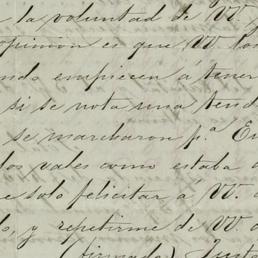 la voluntad de VV.
opinion es que VV
empiecen á tener
si se nota una
se marcharon p.ª
vales como estaba
solo felicitar á VV.
y repetirme de VV
(firmado)